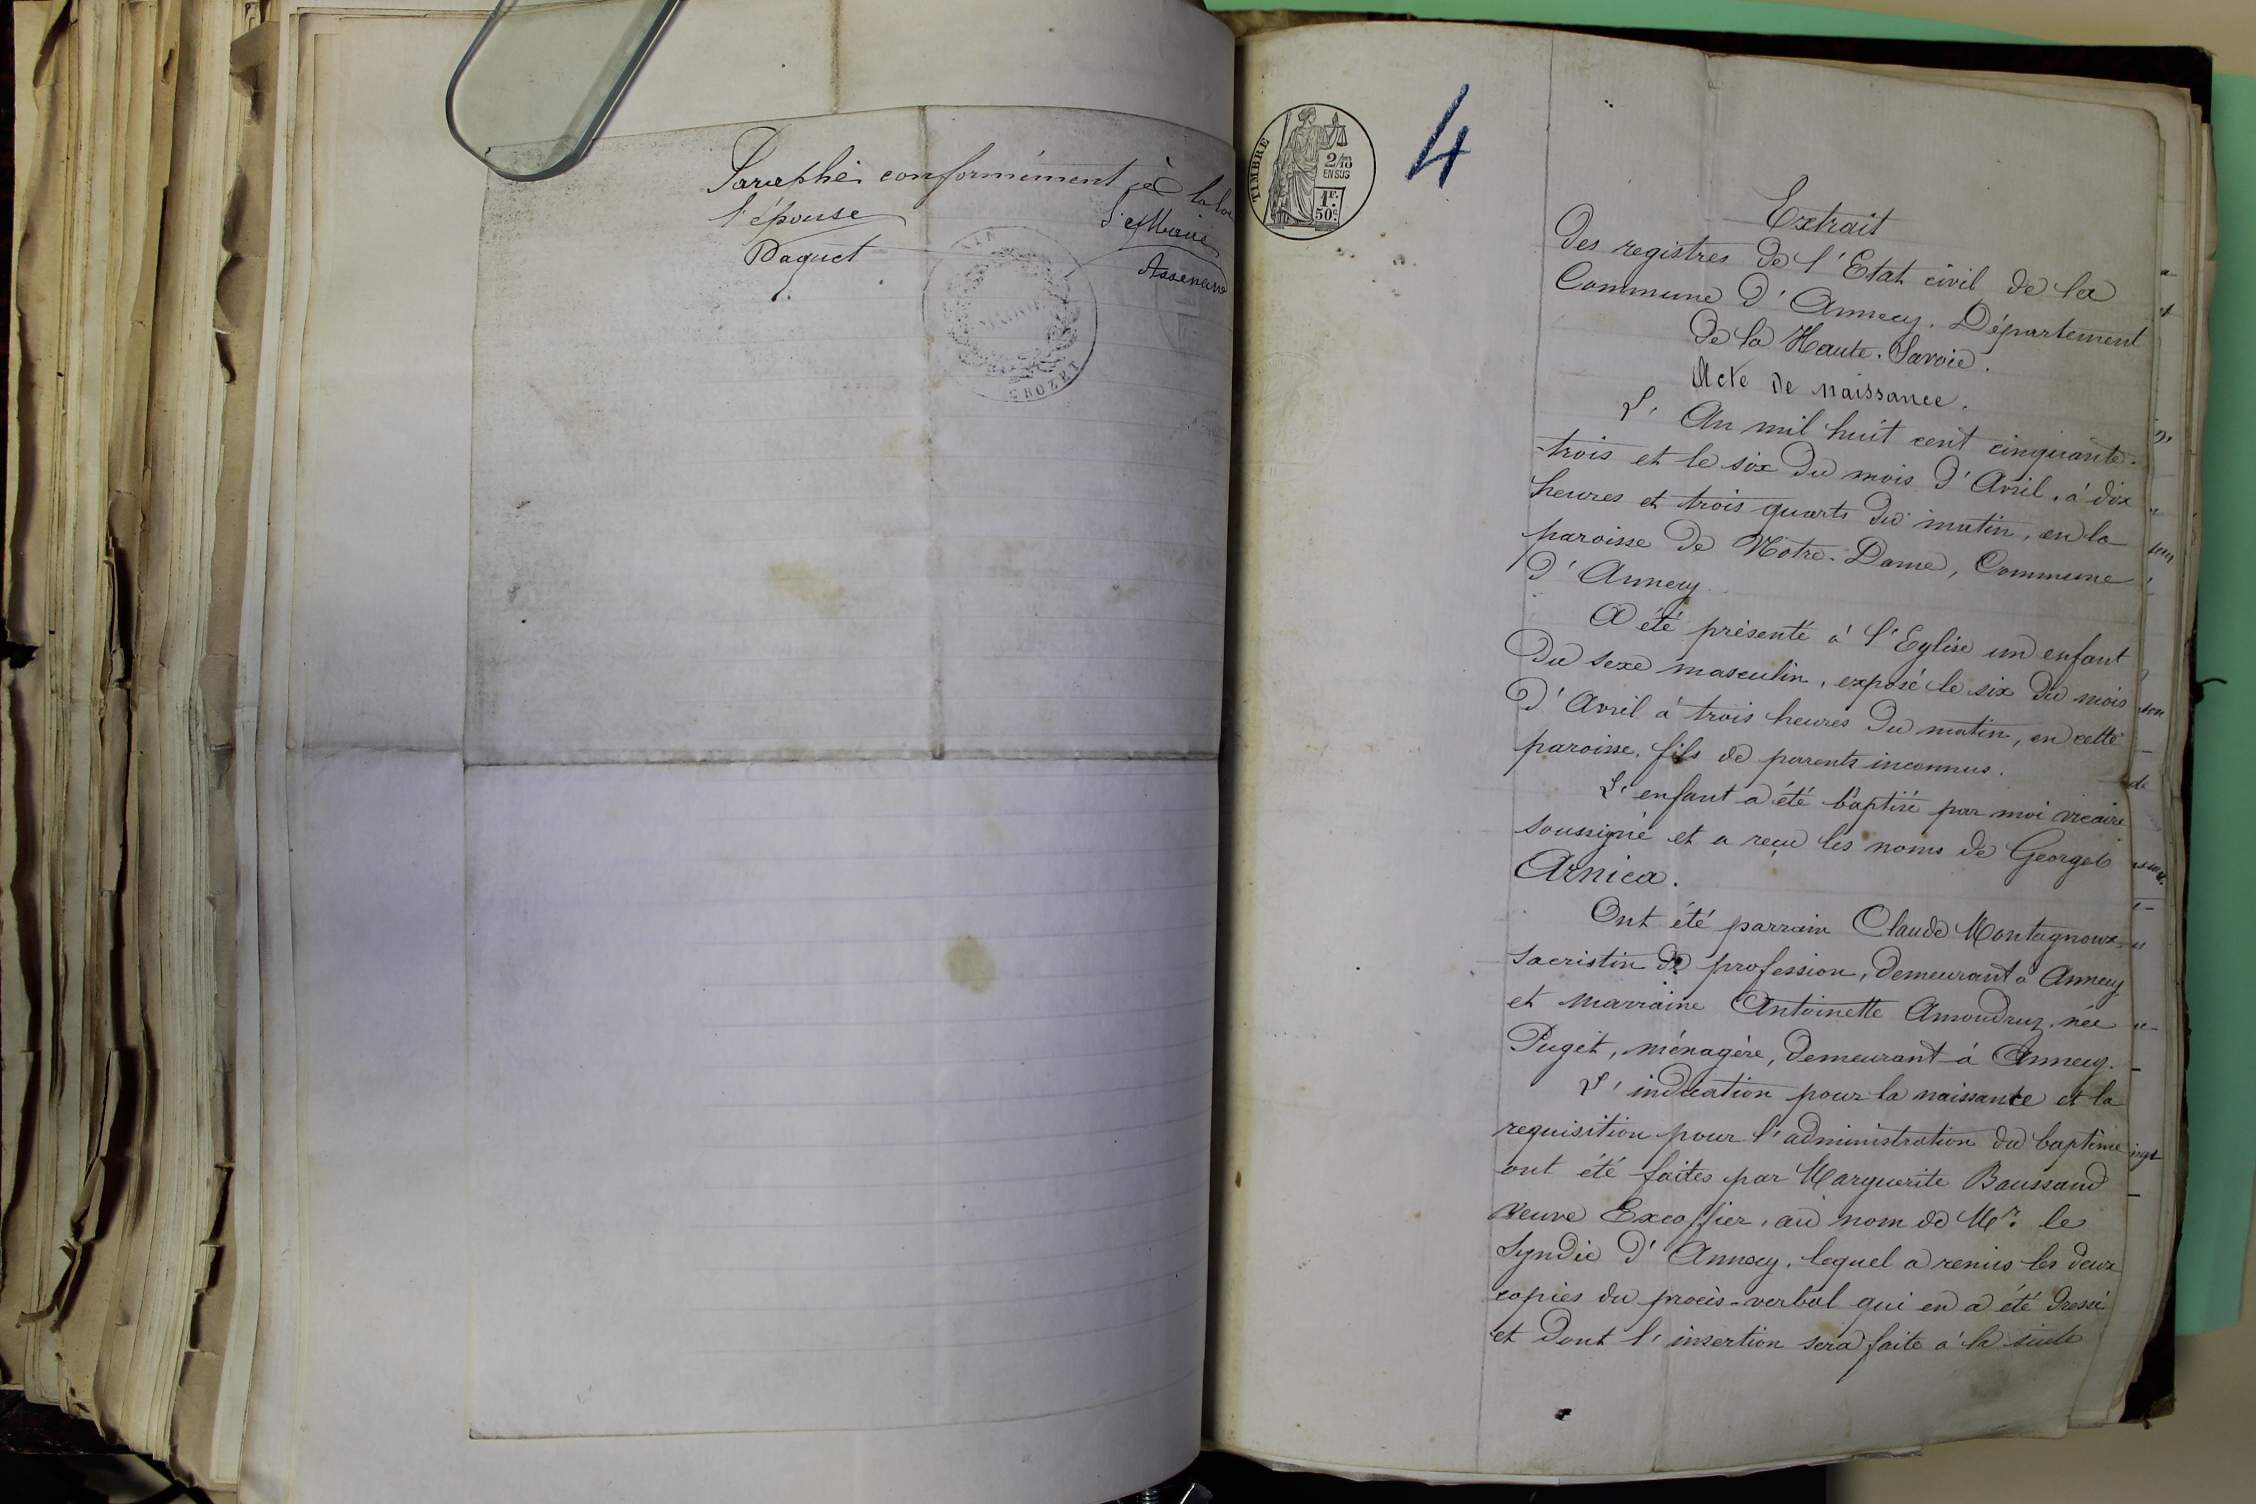 Paraphé conformément à la loi
l'épouse
L. Maire
Daquet
MAIRIE
CROZET
TIMBRE
2/10
EN SUS
1F.
50c.
4
Extrait
des registres de l'Etat civil de la
Commune d'Annecy. Département
de la Haute-Savoie.
Acte de naissance.
L'An mil huit cent cinquante-
-trois et le six du mois d'Avril, à dix
heures et trois quarts du matin, en la
paroisse de Notre-Dame, Commune
d'Annecy
A été présenté à l'Eglise un enfant
du sexe masculin, exposé le six du mois
d'Avril à trois heures du matin, en cette
paroisse, fils de parents inconnus.
L'enfant a été baptisé par moi vicaire
soussigné et a reçu les noms de Georges
Arnica.
Ont été parrain Claude Montagnoux,
sacristin de profession, demeurant à Annecy
et marraine Antoinette Amoudruz, née
Puget, ménagère, demeurant à Annecy.
L'indication pour la naissance et la
requisition pour l'administration du baptême
ont été faites par Marguerite Baussand
veuve Excoffier, au nom de Mr. le
Syndic d'Annecy, lequel a remis les deux
copies du procès-verbal qui en a été dressé
et dont l'insertion sera faite à la suite